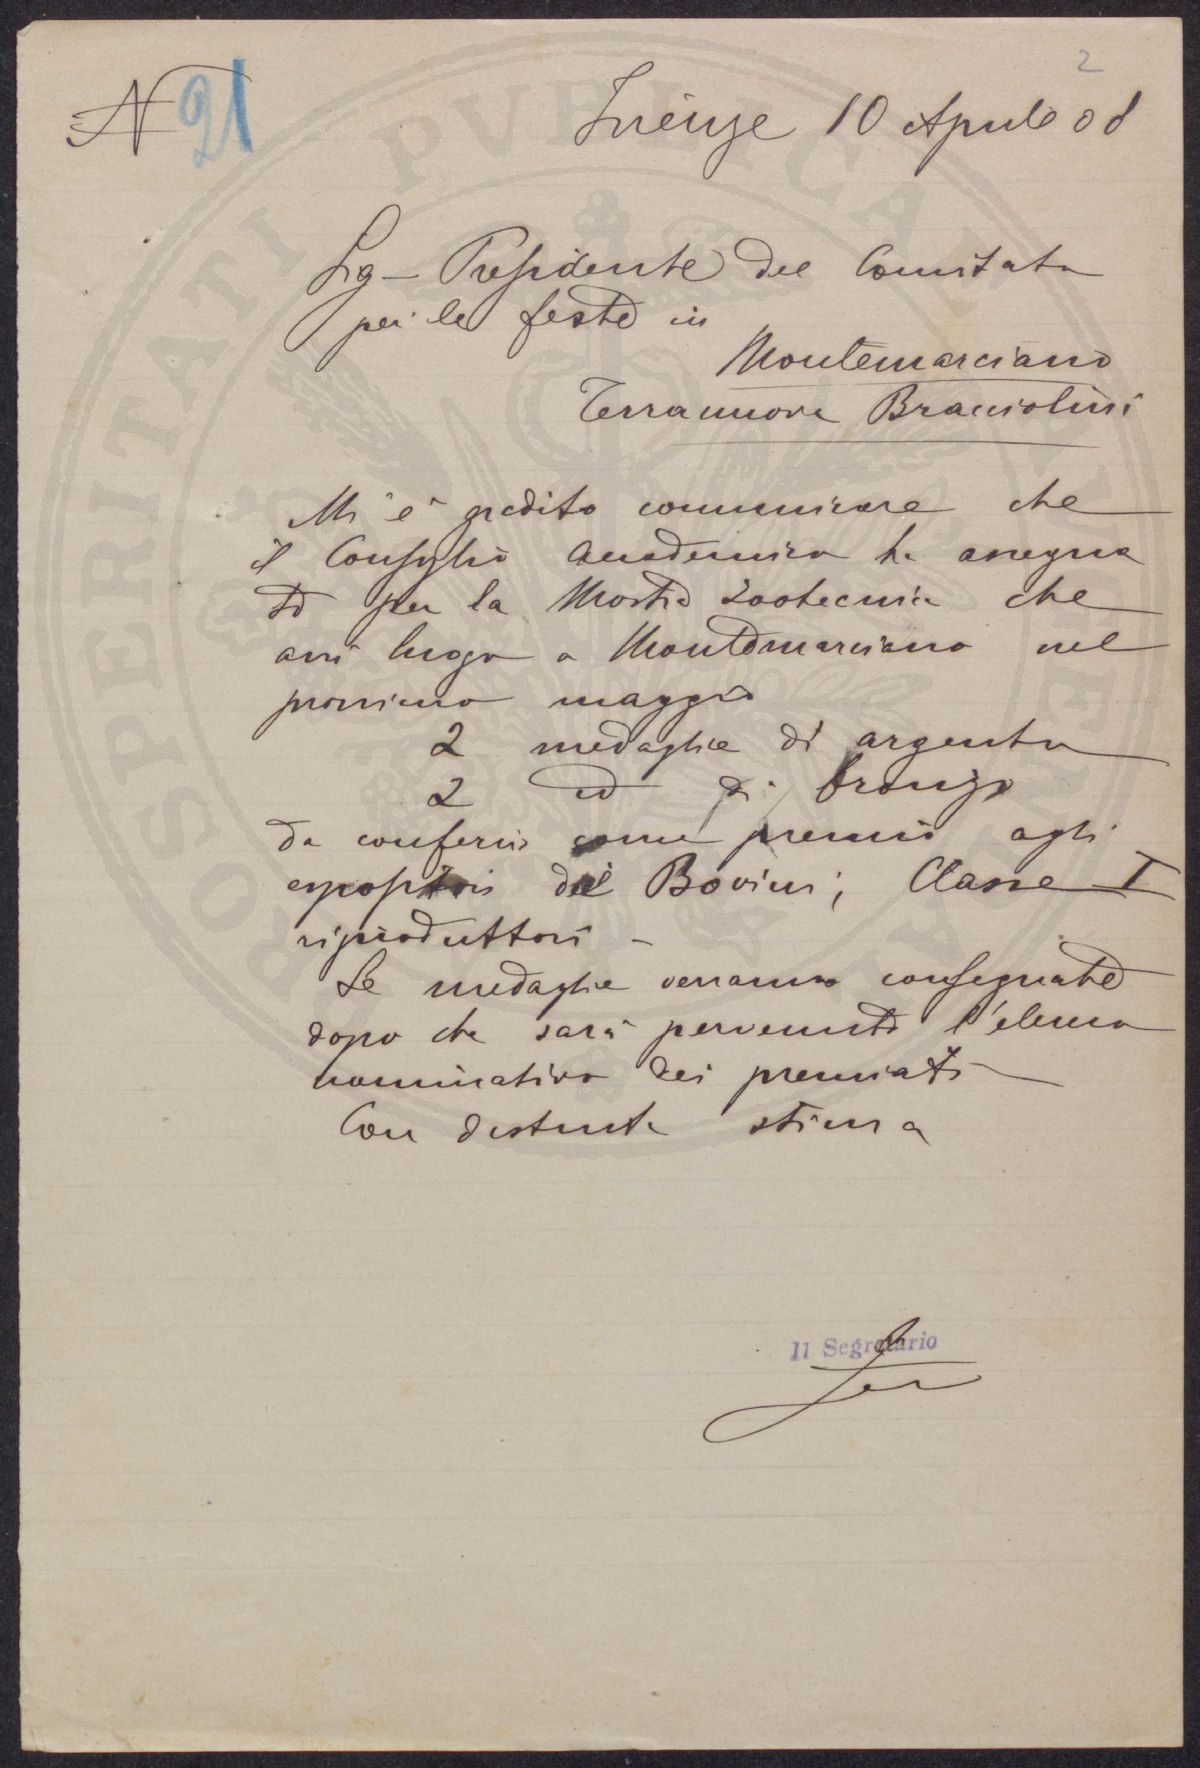 2
N 91
Firenze 10 Aprile 08
Sig– Presidente del Comitato
per le feste in
Montemarciano
Terranuova Bracciolini
Mi è gradito comunicare che
il Consiglio Accademico ha assegna
to per la Mostra zootecnica che
avrà luogo a Montemarciano nel
prossimo maggio
2 medaglie di argento
2 id di bronzo
da conferirsi come premio agli
espositori dei Bovini; Classe I
riproduttori –
Le medaglie verranno consegnate
dopo che sarà pervenuto l'elenco
nominativo dei premiati
Con distinta stima
Il Segretario
PROSPERITATI PVBLICAE